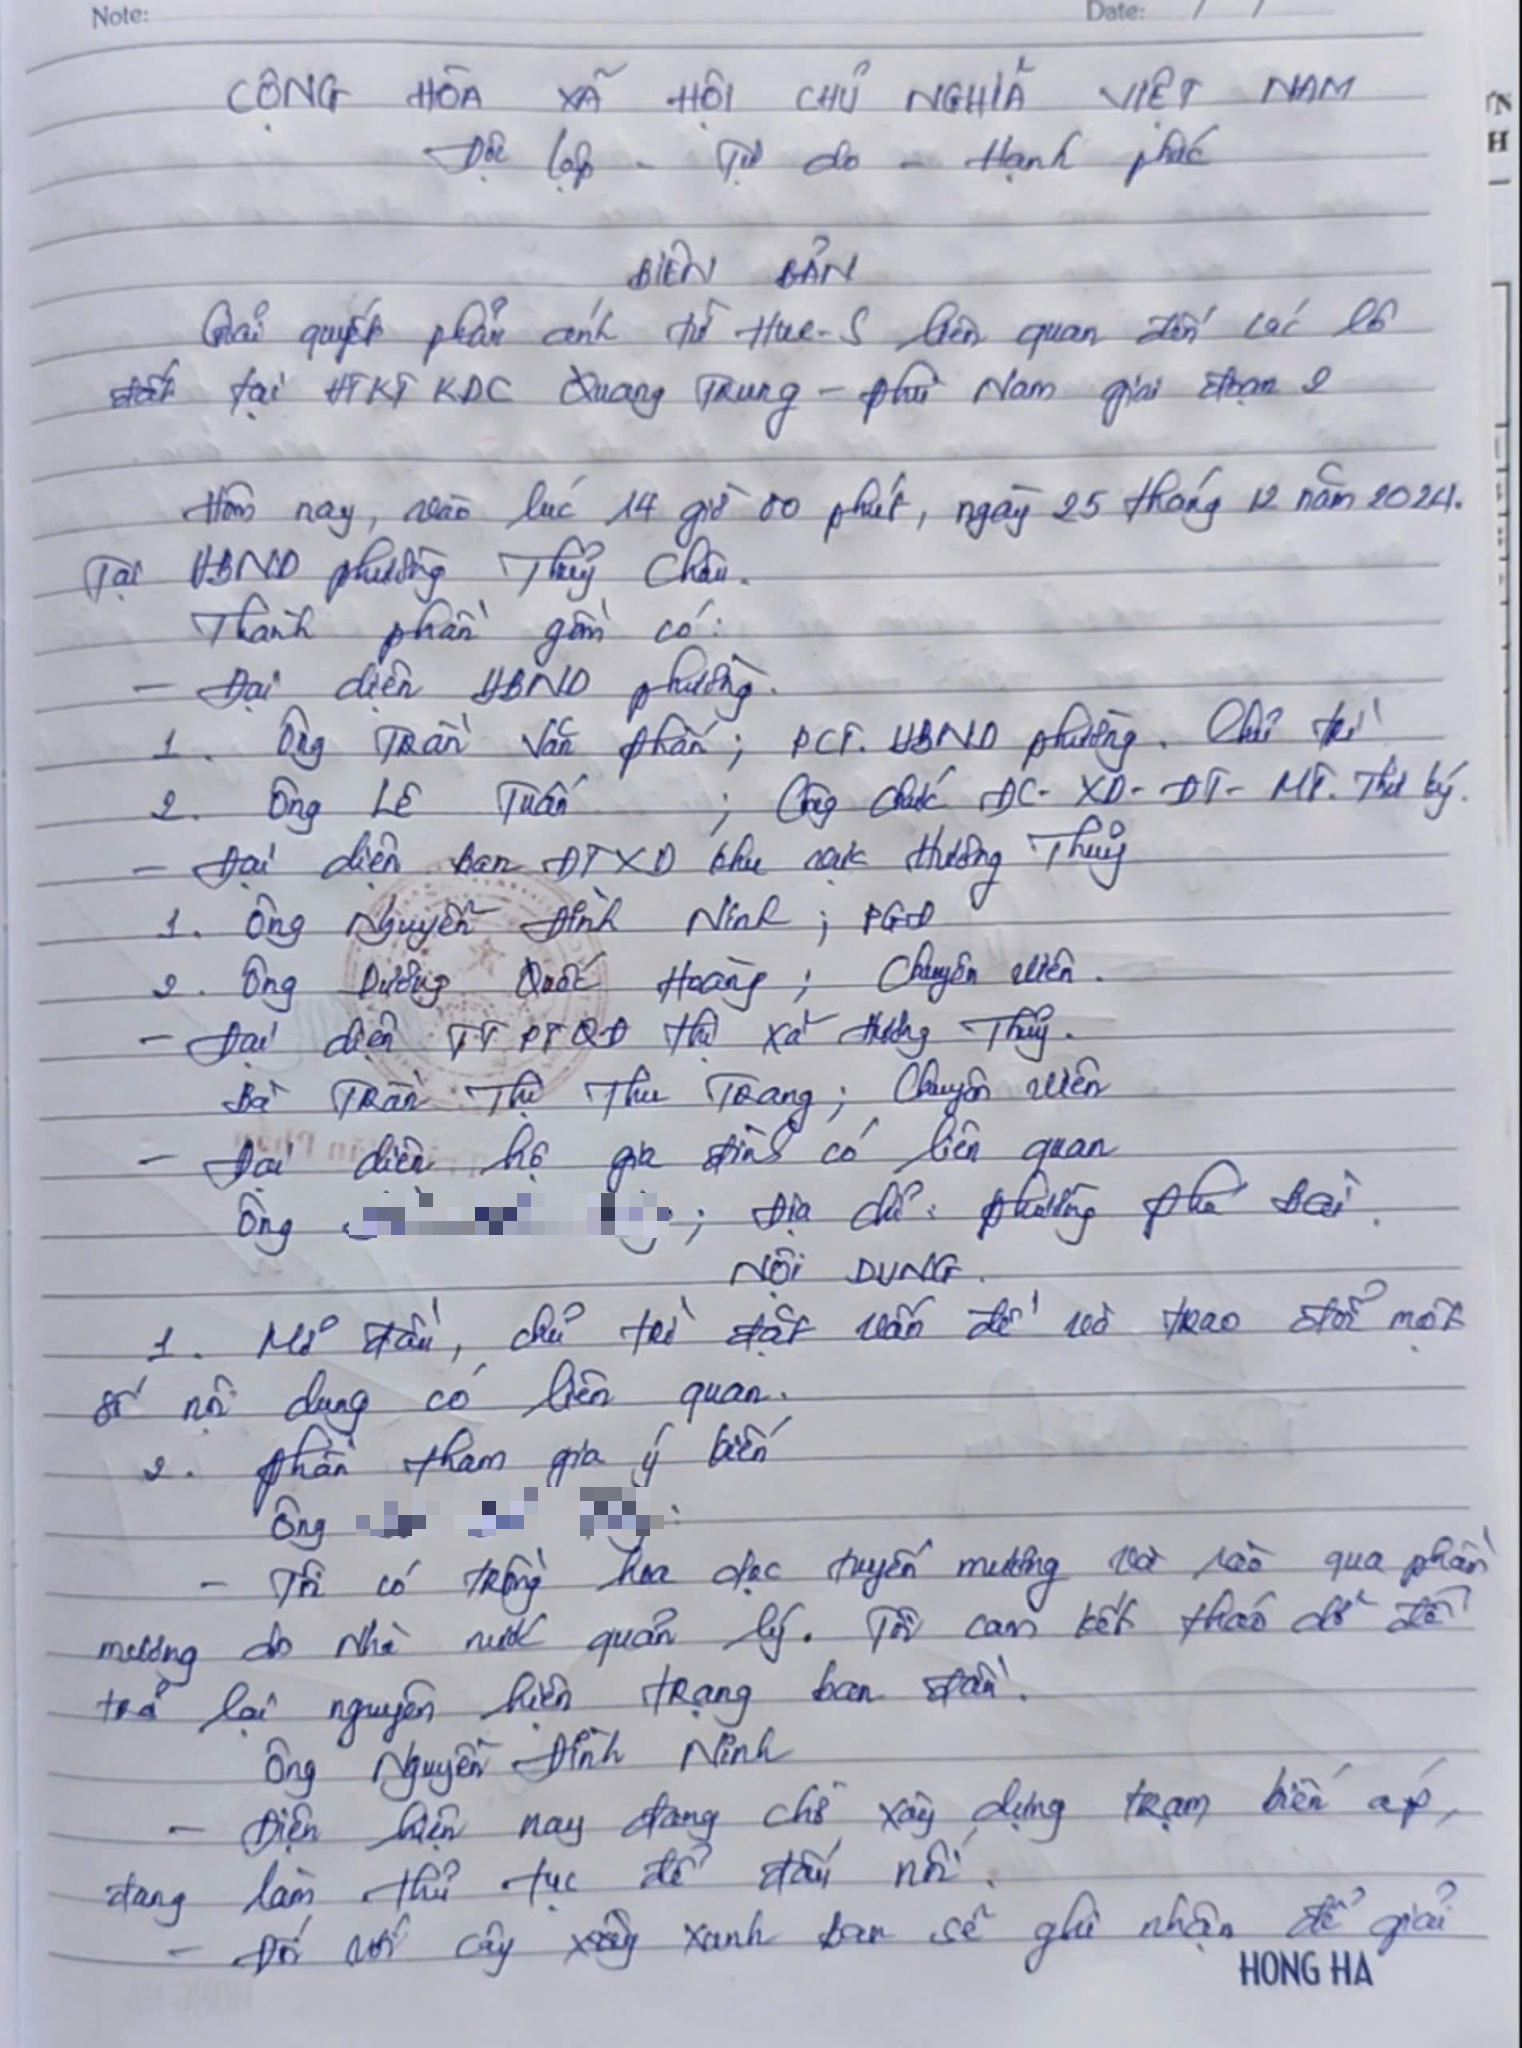 Note:
Date: / /
CỘNG HÒA XÃ HỘI CHỦ NGHĨA VIỆT NAM
Độc lập - Tự do - Hạnh phúc
BIÊN BẢN
Giải quyết phản ánh từ Hue-S liên quan đến các lô
đất tại HTKT KDC Quang Trung - Phù Nam giai đoạn 2
Hôm nay, vào lúc 14 giờ 00 phút, ngày 25 tháng 12 năm 2024.
Tại UBND phường Thủy Châu.
Thành phần gồm có:
- Đại diện UBND phường.
1. Ông Trần Văn Phấn; PCT. UBND phường. Chủ trì
2. Ông Lê Tuấn ; Công chức ĐC-XD-ĐT-MT. Thư ký.
- Đại diện ban ĐTXD khu vực Hương Thủy
1. Ông Nguyễn Đình Ninh; PGĐ
2. Ông Dương Quốc Hoàng; Chuyên viên.
- Đại diện TTPTQĐ thị xã Hương Thủy.
Bà Trần Thị Thu Trang; Chuyên viên
- Đại diện hộ gia đình có liên quan
Ông ; Địa chỉ: phường Phú Bài.
NỘI DUNG.
1. Mở đầu, chủ trì đặt vấn đề và trao đổi một
số nội dung có liên quan.
2. Phần tham gia ý kiến
Ông :
- Tôi có trồng hoa dọc tuyến mương và rào qua phần
mương do Nhà nước quản lý. Tôi cam kết tháo dỡ để
trả lại nguyên hiện trạng ban đầu.
Ông Nguyễn Đình Ninh
- Điện hiện nay đang chờ xây dựng trạm biến áp,
đang làm thủ tục để đấu nối.
- Đối với cây xanh ban sẽ ghi nhận để giải
HONG HA